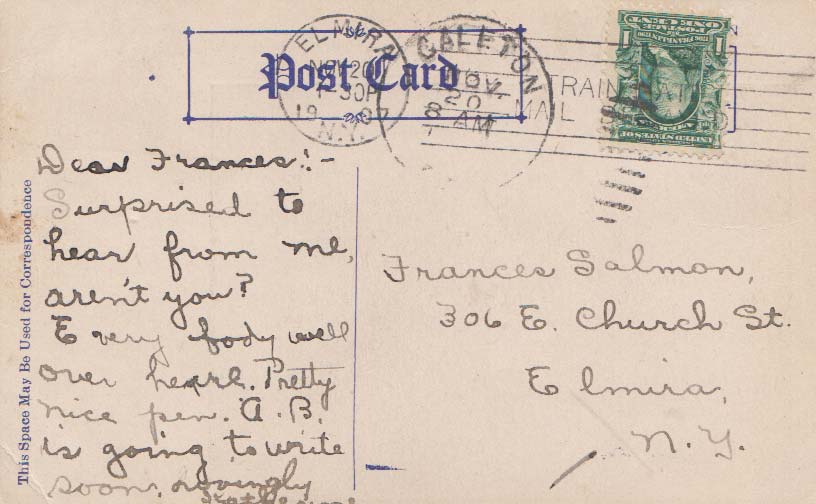 Post Card
ELMIRA
NOV 20
1907
N.Y.
GALETON
NOV.
20
8 AM
TRAIN LATE
MAIL
POSTAGE
ONE CENT
1 1
UNITED STATES OF AMERICA
This Space May Be Used for Correspondence
Dear Frances:-
Surprised to
hear from me,
aren't you?
Every body well
over here. Pretty
nice pen. A. B.
is going to write
soon. Lovingly
Frances Salmon,
306 E. Church St.
Elmira,
N.Y.